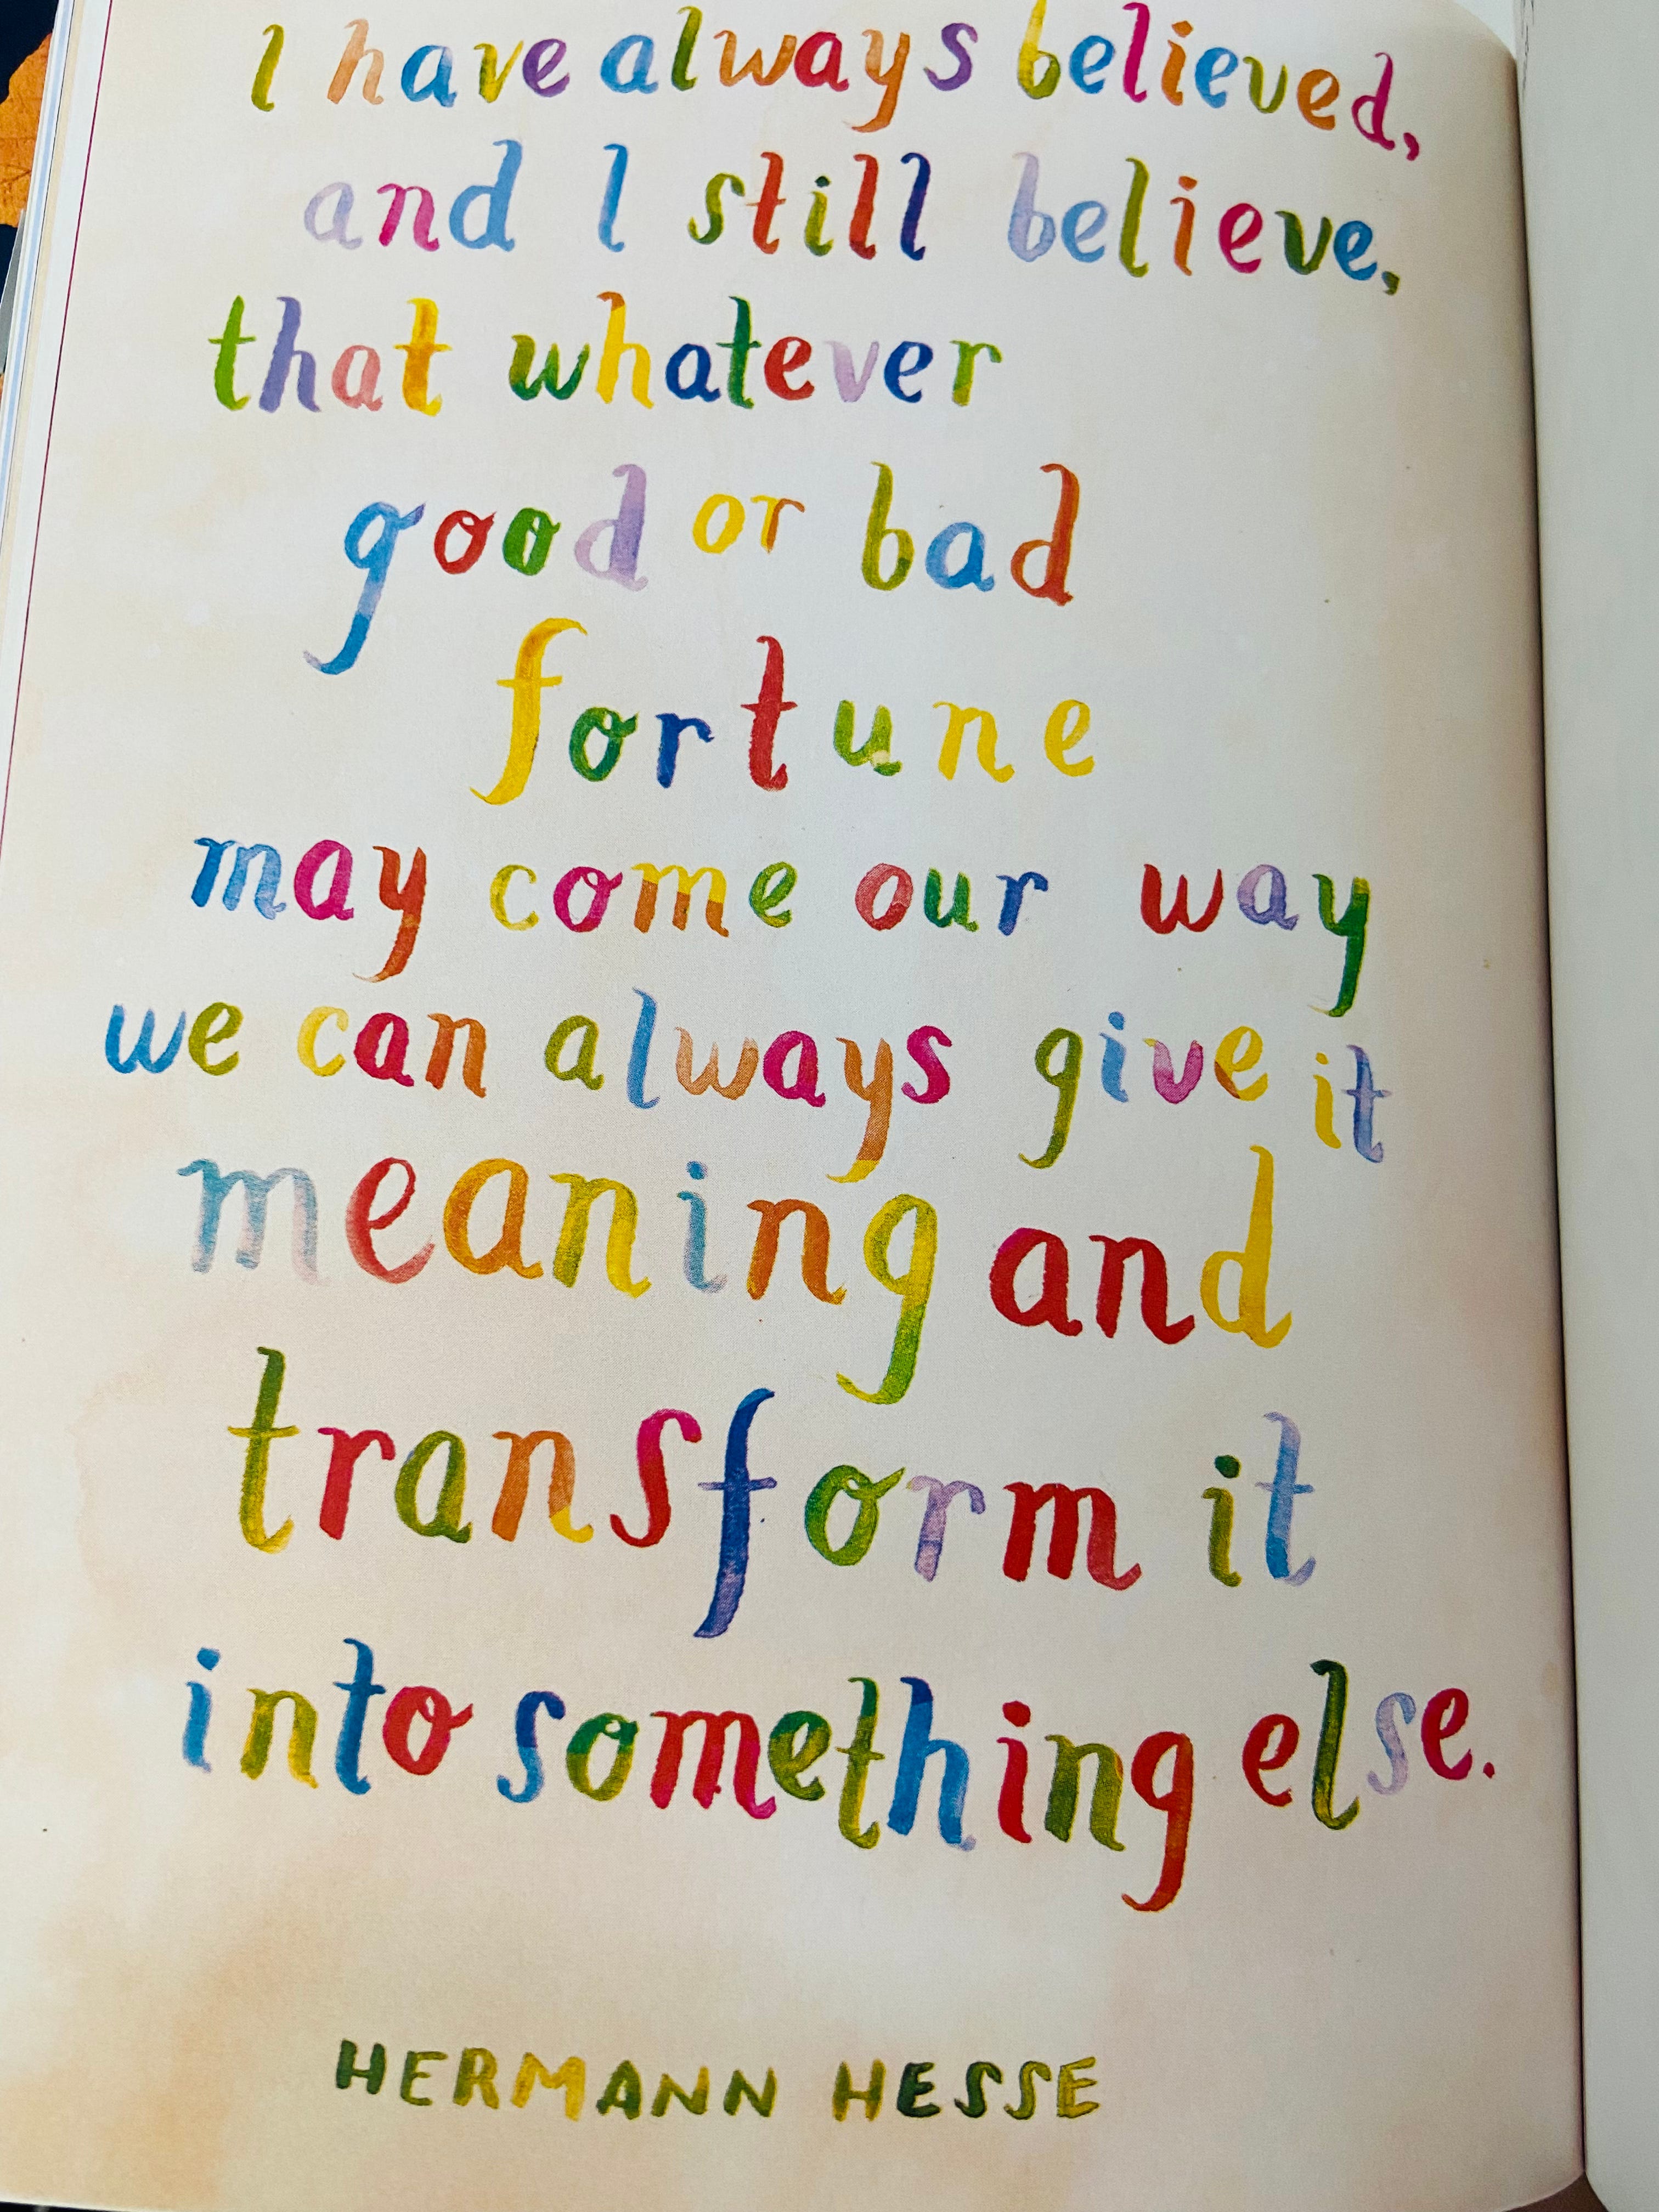 I have always believed,
and I still believe,
that whatever
good or bad
fortune
may come our way
we can always give it
meaning and
transform it
into something else.
HERMANN HESSE